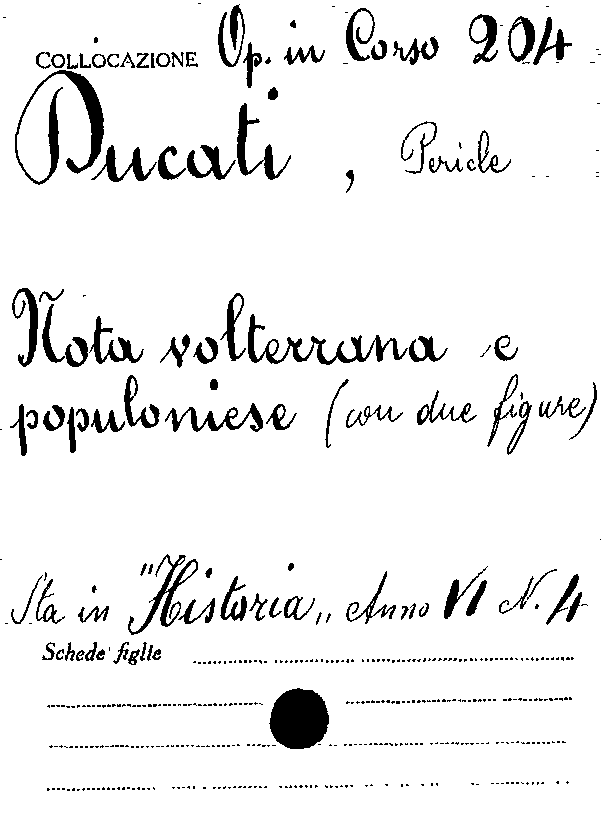 COLLOCAZIONE Op. in Corso 204
Ducati, Pericle
Nota volterrana e
populoniese (con due figure)
Sta in "Historia„ Anno VI N. 4
Schede figlie